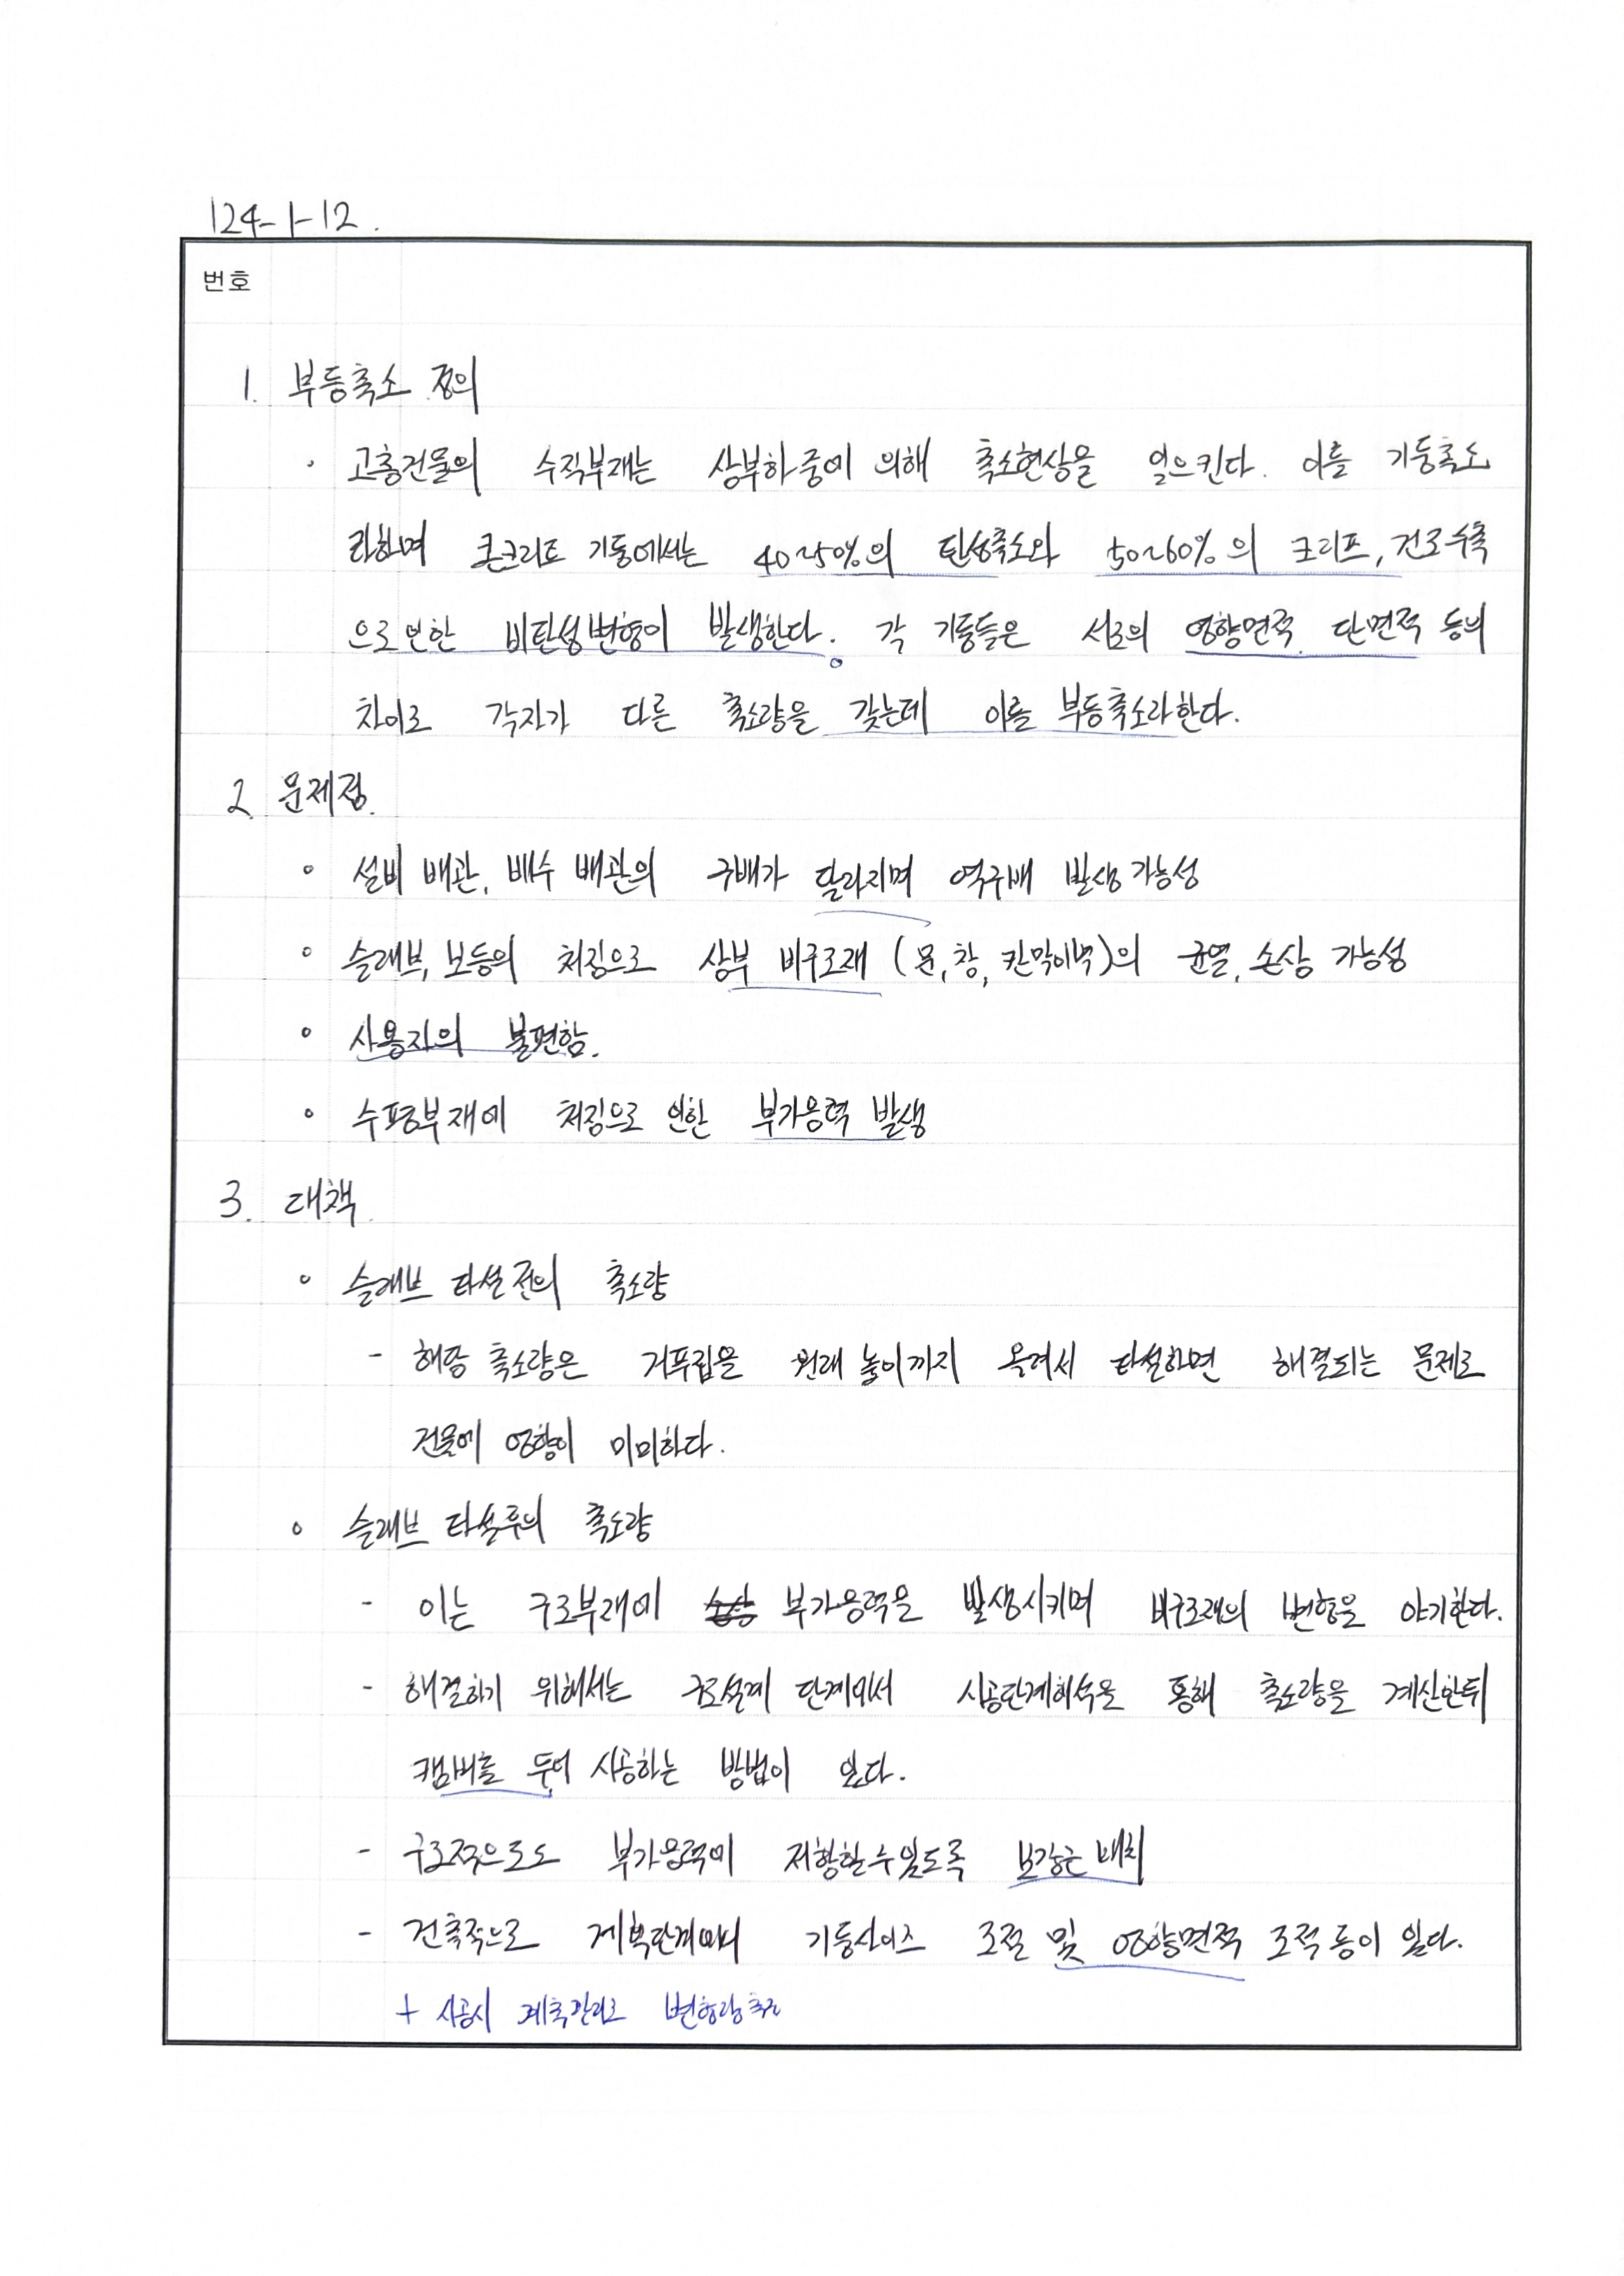 124-1-12.
번호
1. 부등축소 정의
· 고층건물의 수직부재는 상부하중에 의해 축소현상을 일으킨다. 이를 기둥축소
라하며 콘크리트 기둥에서는 40~50%의 탄성축소와 50~60%의 크리프, 건조수축
으로인한 비탄성변형이 발생한다. 각 기둥들은 서로의 영향면적, 단면적 등의
차이로 각자가 다른 축소량을 갖는데 이를 부등축소라한다.
2. 문제점.
◦ 설비 배관, 배수 배관의 구배가 달라지며 역구배 발생 가능성
◦ 슬래브, 보등의 처짐으로 상부 비구조재 (문, 창, 칸막이벽)의 균열, 손상 가능성
◦ 사용자의 불편함.
◦ 수평부재에 처짐으로 인한 부가응력 발생
3. 대책.
◦ 슬래브 타설전의 축소량
- 해당 축소량은 거푸집을 원래 높이까지 올려서 타설하면 해결되는 문제로
건물에 영향이 미미하다.
◦ 슬래브 타설후의 축소량
- 이는 구조부재에 부가응력을 발생시키며 비구조재의 변형을 야기한다.
- 해결하기 위해서는 구조설계 단계에서 시공단계해석을 통해 축소량을 계산한뒤
캠버를 두어 시공하는 방법이 있다.
- 구조적으로도 부가응력에 저항할수있도록 보강근 배치
- 건축적으로 계획단계에서 기둥사이즈 조절 및 영향면적 조적 등이 있다.
+ 시공시 계측관리로 변형량 축소